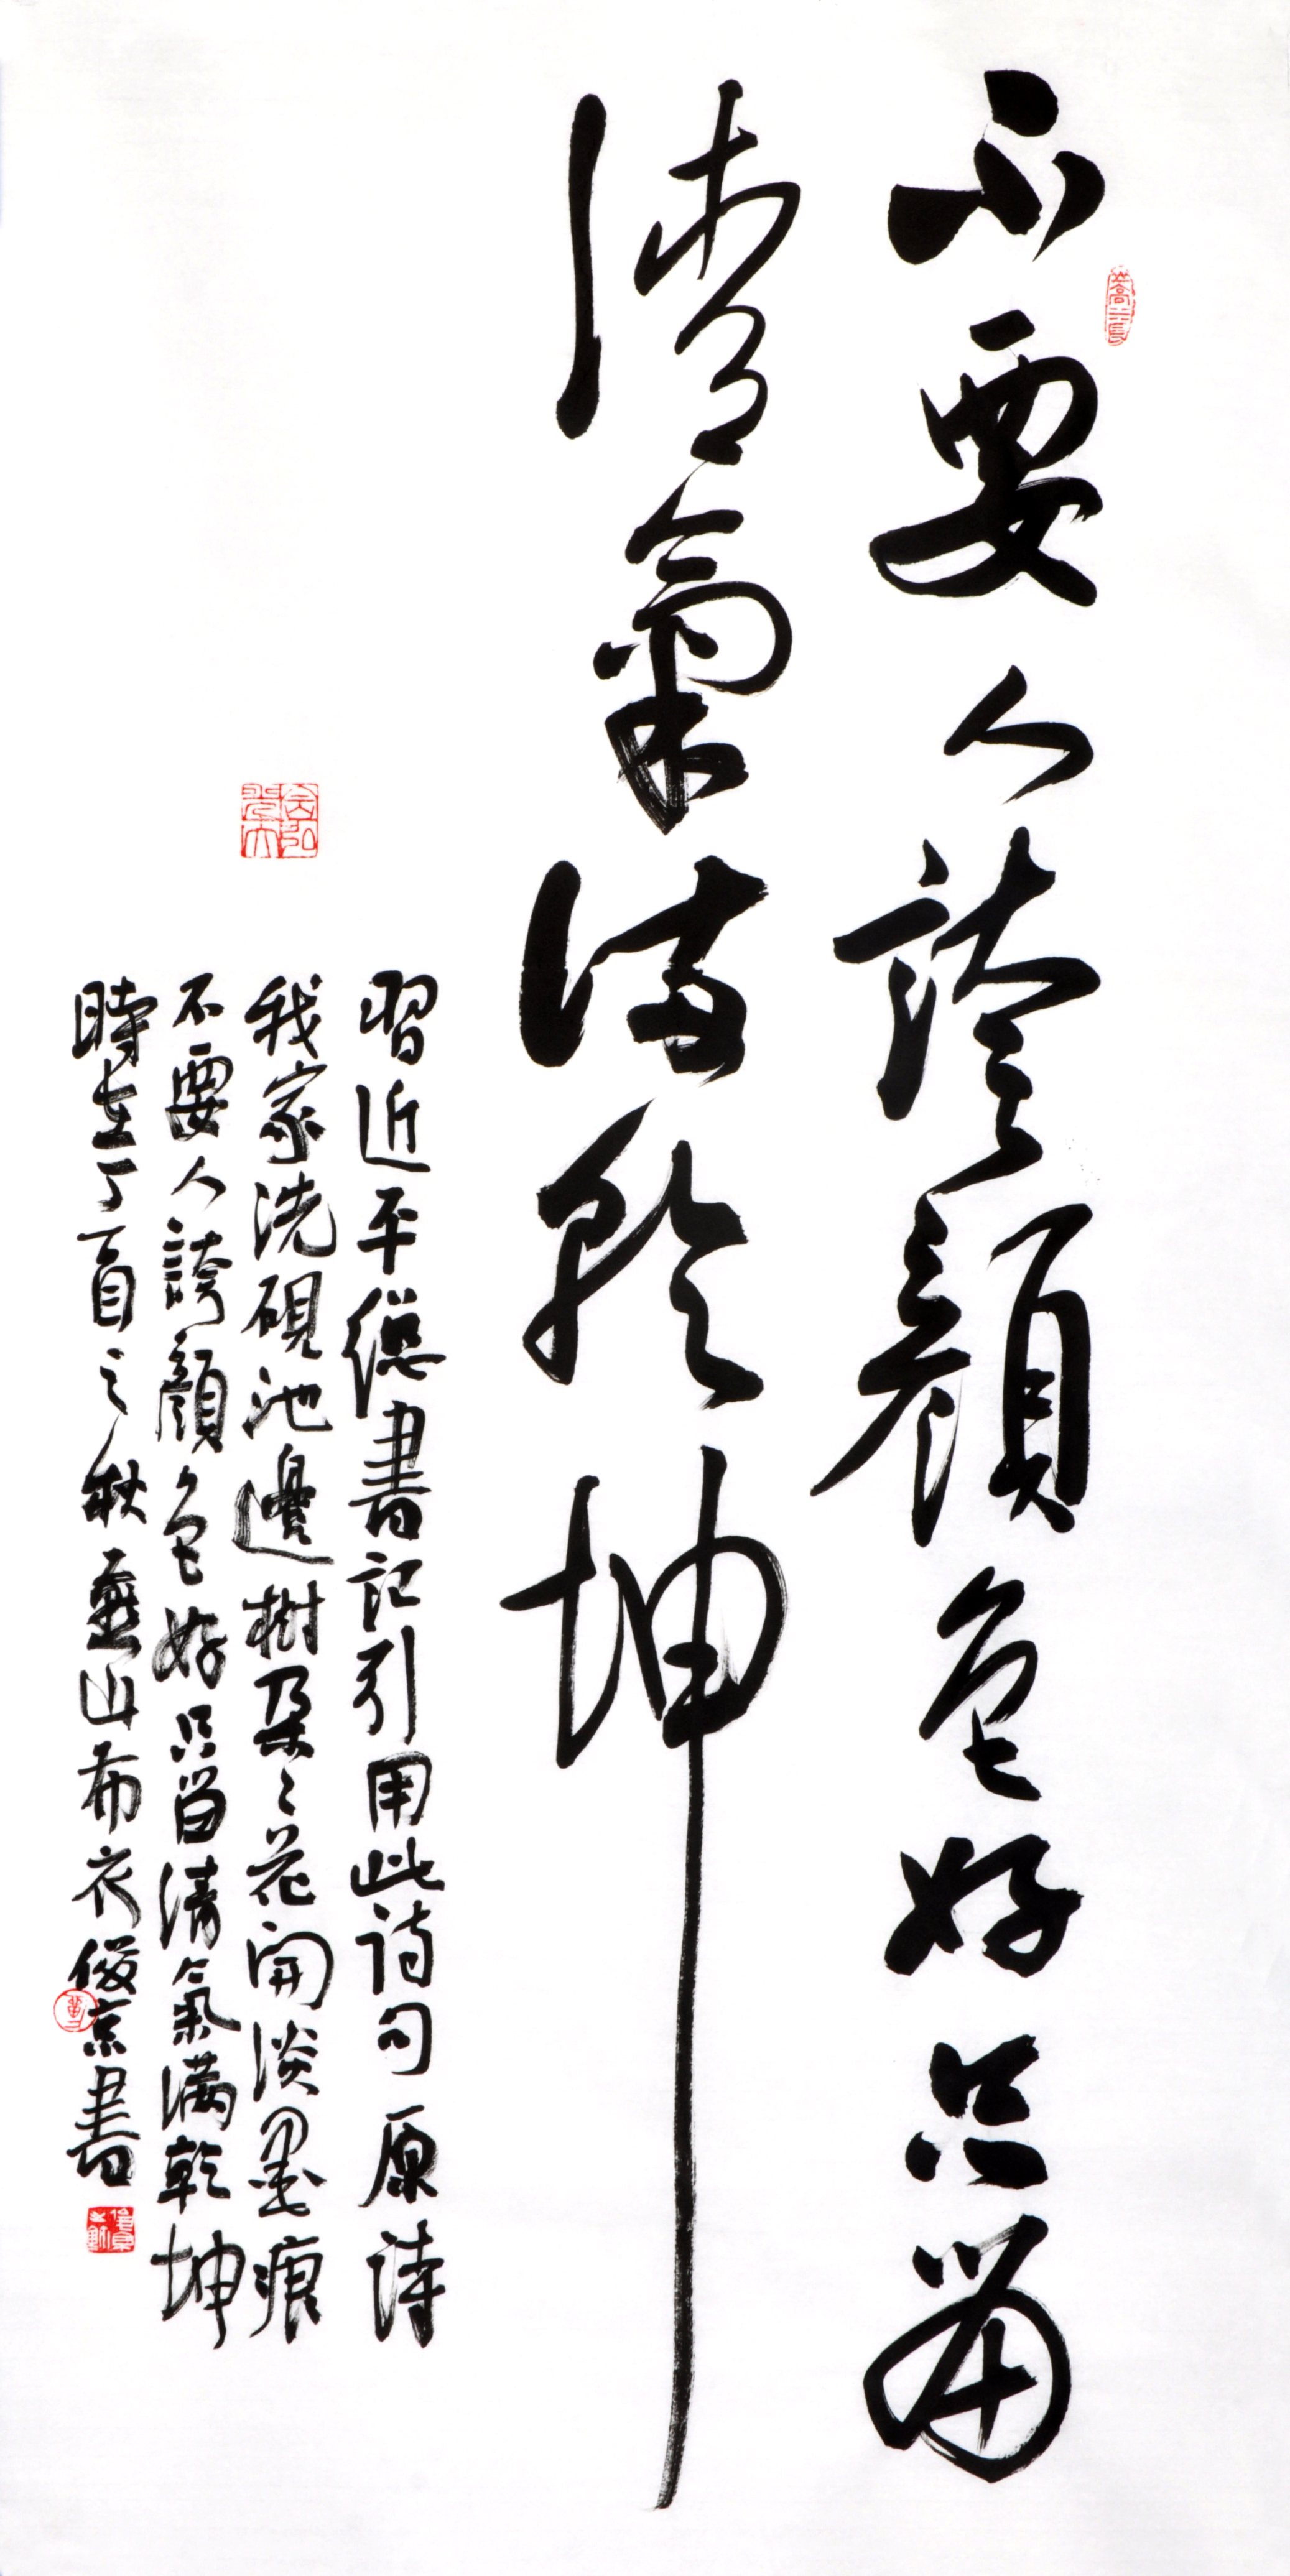 不要人誇顏色好只留
清氣滿乾坤
習近平總書記引用此詩句原詩
我家洗硯池邊樹朵々花開淡墨痕
不要人誇顏色好只留清氣滿乾坤
時在丁酉之秋燕山布衣俊京書